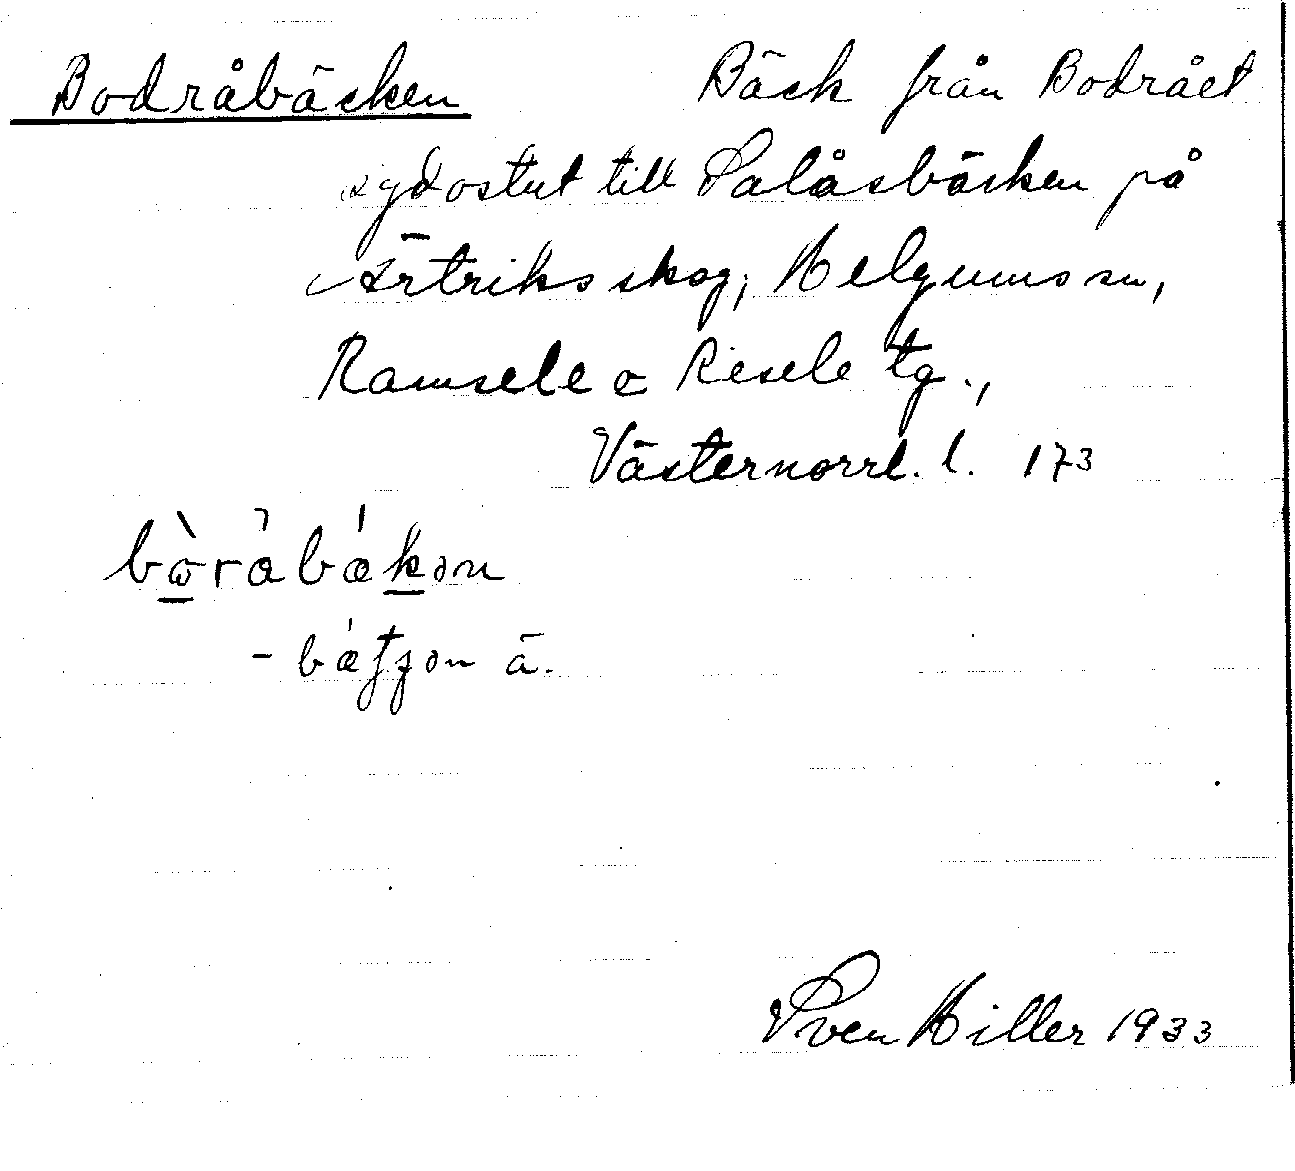 Bodråbäcken Bäck från Bodrået
sydostut till Salåsbäcken på
Ärtriks skog, Helgums sn,
Ramsele o Resele tg.,
Västernorrl. l. 173
- ä.
Sven Hiller 1933